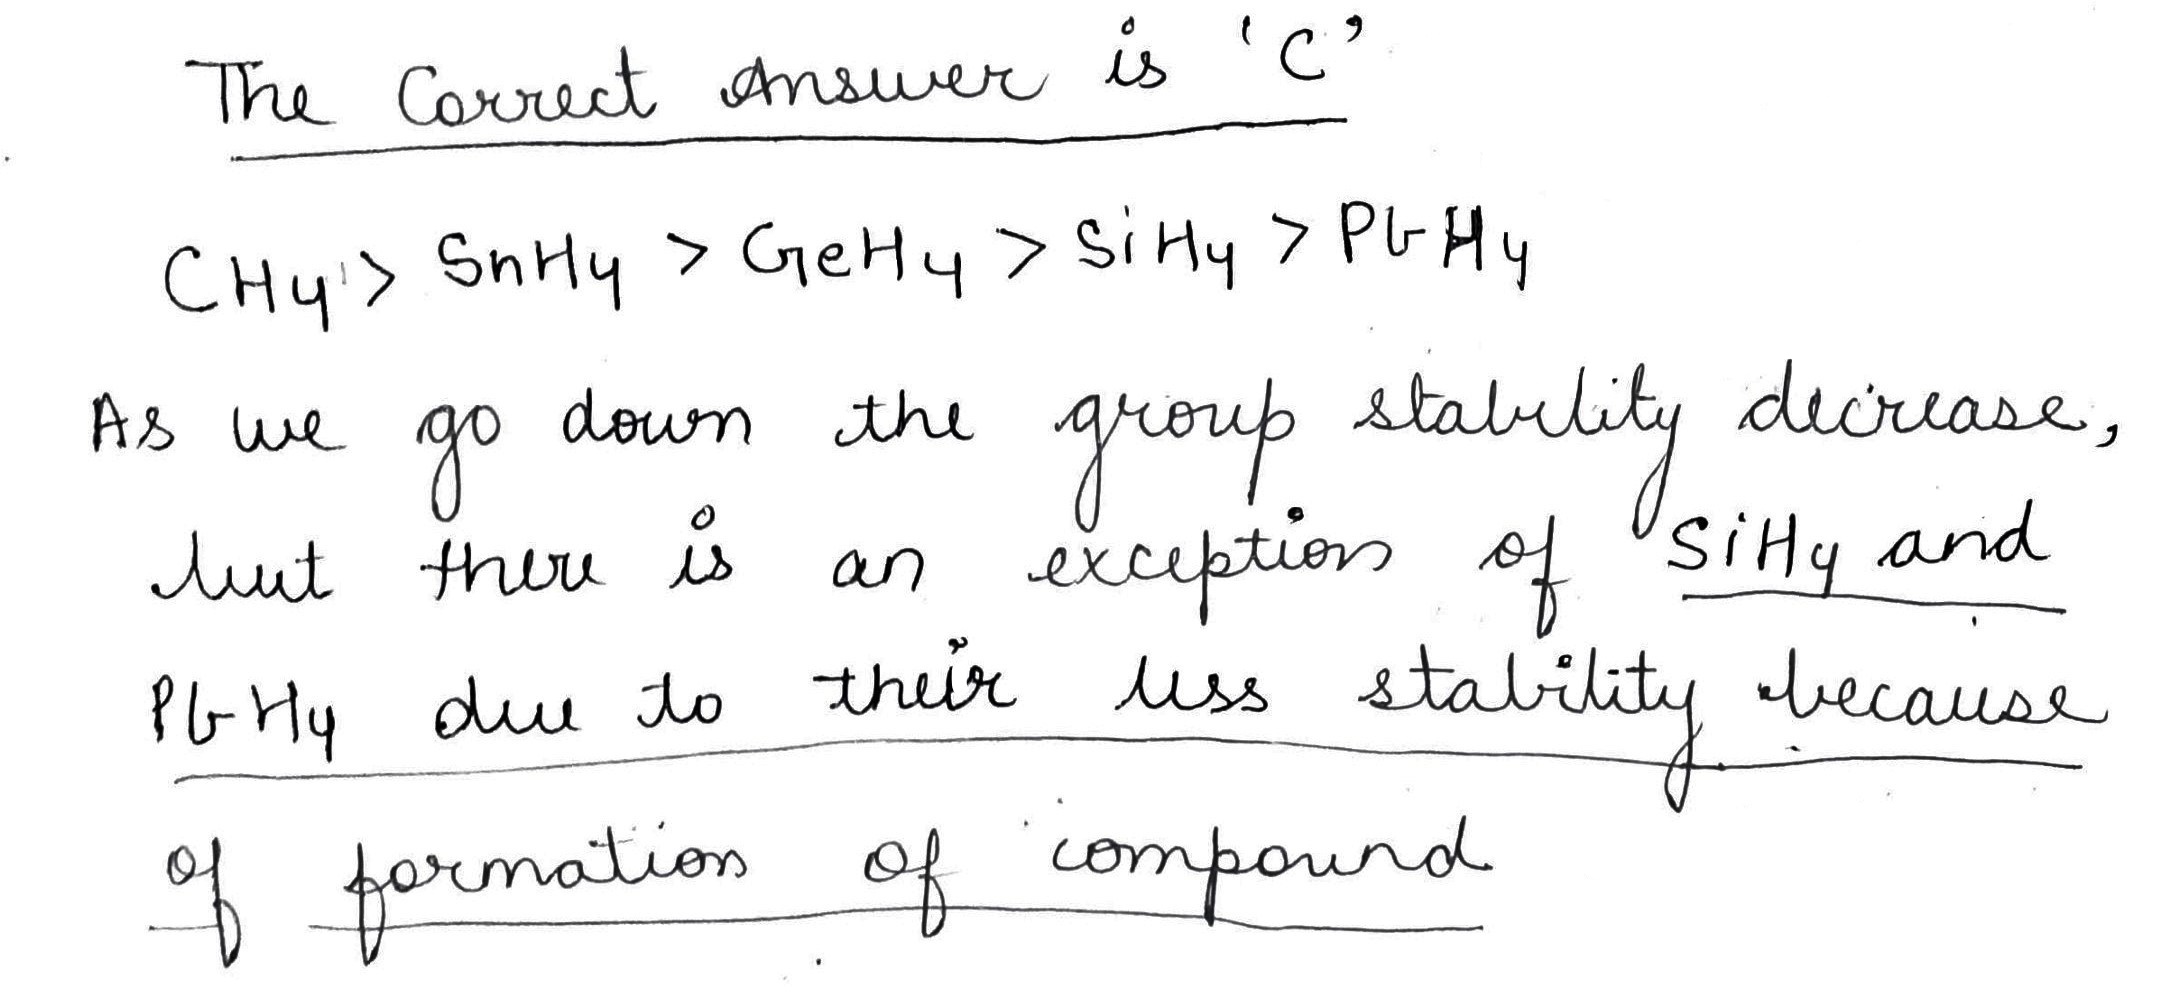 The Correct Answer is 'C'
CH4 > SnH4 > GeH4 > SiH4 > PbH4
As we go down the group stability decrease,
but there is an exception of SiH4 and
PbH4 due to their less stability because
of formation of compound